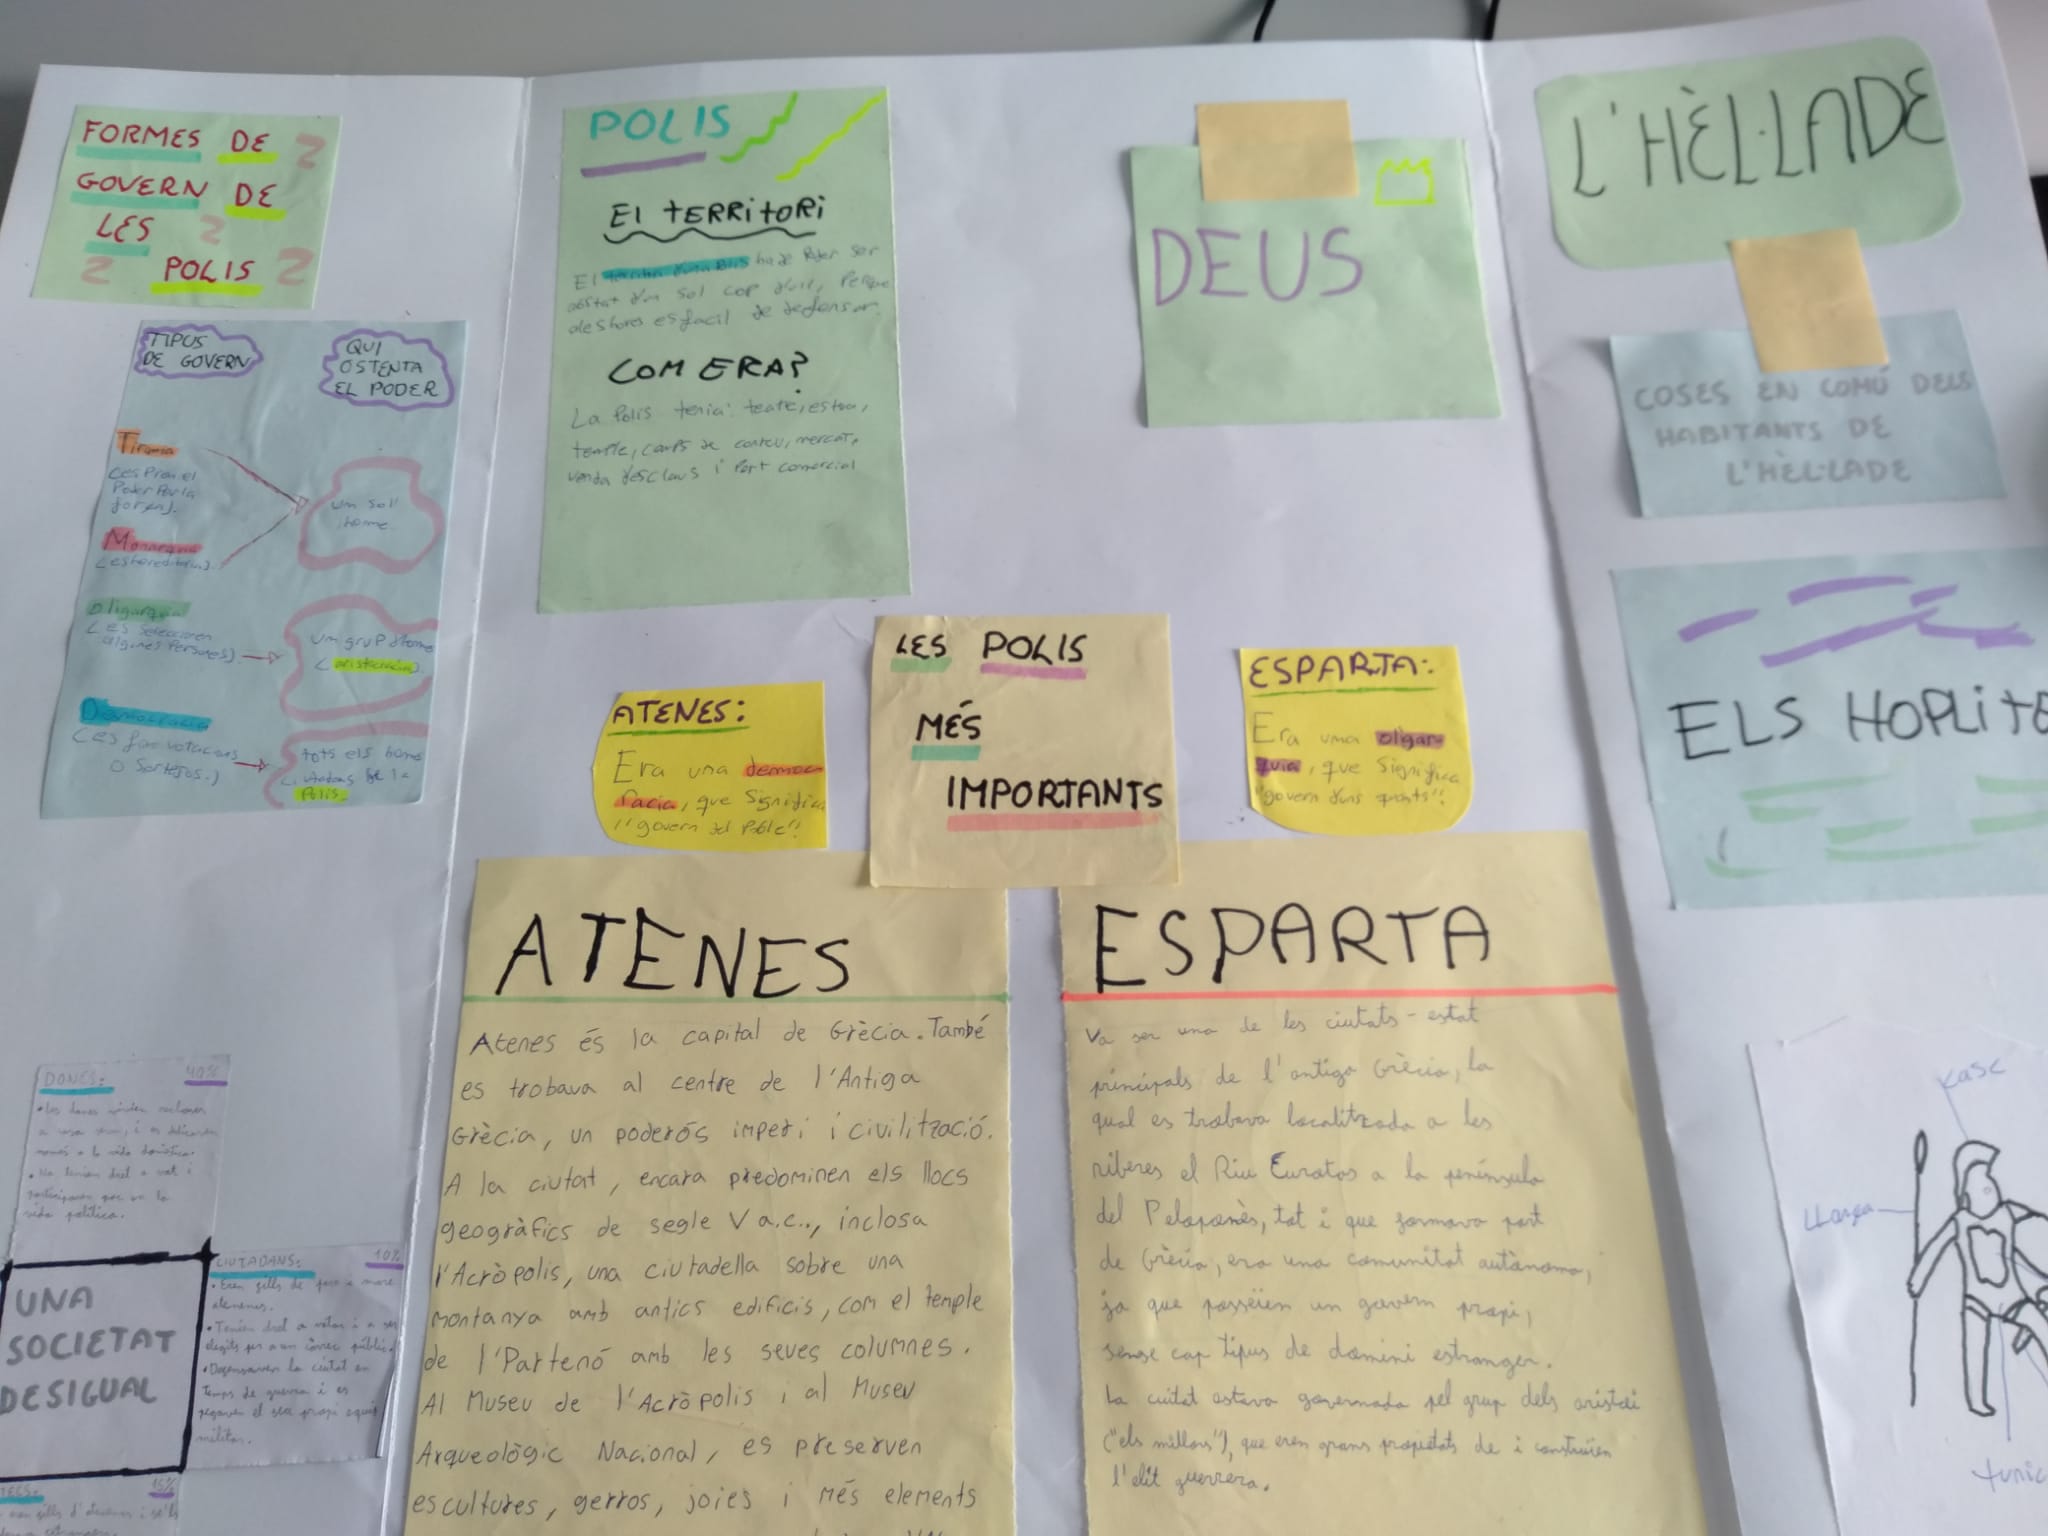 FORMES DE
GOVERN DE
LES
POLIS
TIPUS
DE GOVERN
QUI
OSTENTA
EL PODER
Tirania
(es pren el
Poder Per la
força).
un sol
home.
Monarquia
(es hereditaria).
Oligarquia
(es seleccionen
algunes Persones).
un grup d'home
(aristocracia).
Democracia
(es fan votacions
o sortejos.)
tots els homes
ciutadans de la
Polis.
DONES: 40%
• Les dones vivien recloses
a casa seva, i es dedicaven
només a la vida domèstica.
• No tenien dret a vot i
participaven poc en la
vida política.
UNA
SOCIETAT
DESIGUAL
CIUTADANS: 10%
• Eren fills de pare i mare
atenenes.
• Tenien dret a votar i a ser
elegits per a un càrrec públic.
• Defensaven la ciutat en
temps de guerra i es
pagaven el seu propi equip
militar.
TECS: 15%
POLIS
El TERRiTORi
El territori d'una Polis ha de Poder ser
d'un sol cop d'ull, Perque
aleshores es facil de defensar.
COM ERA?
La Polis tenia: teatre, estoa,
temple, camps de conreu, mercat,
venda d'esclaus i Port comercial
DEUS
LES POLIS
MÉS
IMPORTANTS
ATENES:
Era una democ
racia, que significa
"govern del Poble"!
ESPARTA:
Era una oligar-
quia, que significa
"govern d'uns quants"!
ATENES
Atenes és la capital de Grècia. També
es trobava al centre de l'Antiga
Grècia, un poderós imperi i civilització.
A la ciutat, encara predominen els llocs
geogràfics de segle V a.c.., inclosa
l'Acròpolis, una ciutadella sobre una
montanya amb antics edificis, com el temple
de l'Partenó amb les seves columnes.
Al Museu de l'Acròpolis i al Museu
Arqueològic Nacional, es preserven
escultures, gerros, joies i més elements
ESPARTA
Va ser una de les ciutats-estat
principals de l'antiga Grècia, la
qual es trobava localitzada a les
riberes el Riu Eurotas a la península
del Peloponès, tot i que formava part
de Grècia, era una comunitat autònoma,
ja que posseïen un govern propi,
sense cap tipus de domini estranger.
La ciutat estava governada pel grup dels aristoi
("els millors"), que eren grans propietats de i constituïen
l'elit guerrera.
L'HÈL·LADE
COSES EN COMÚ DELS
HABITANTS DE
L'HÈL·LADE
ELS HOPLiTE
Kasc
LLança
tunic